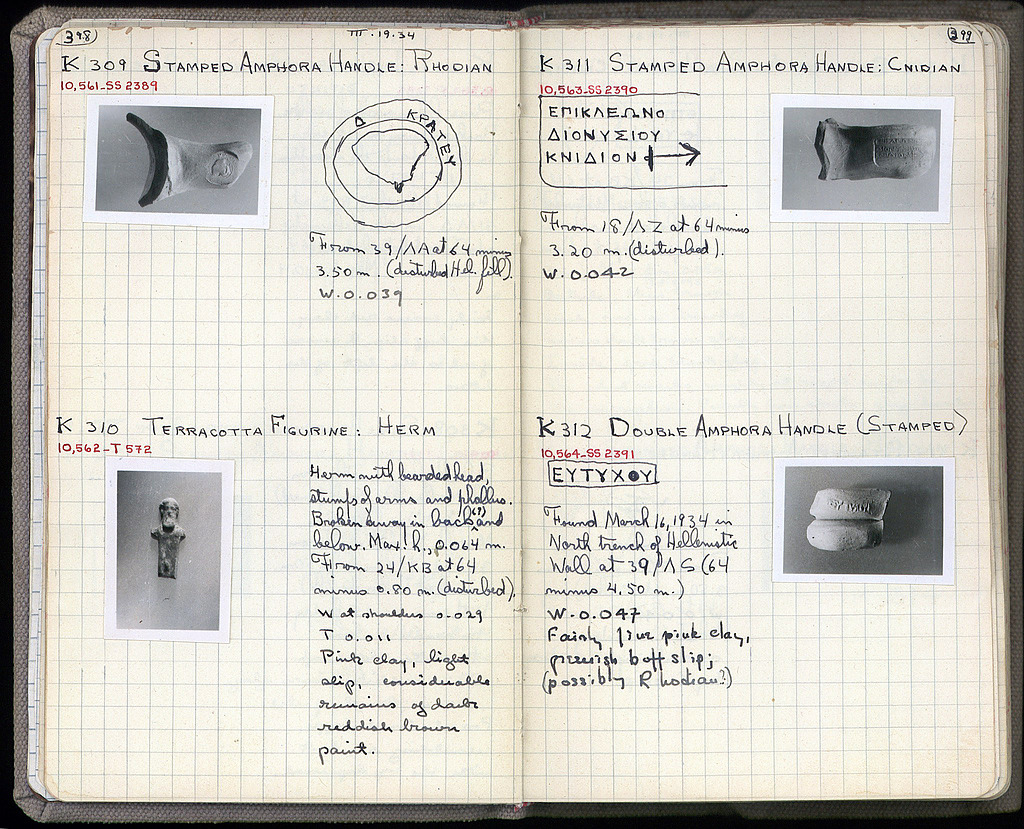 398
III.19.34
K 309 STAMPED AMPHORA HANDLE: RHODIAN
10,561-SS 2389
Δ ΚΡΑΤΕΥ
From 39/ΛΑ at 64 minus
3.50 m. (disturbed Hel. fill).
W. 0.039
K 310 TERRACOTTA FIGURINE: HERM
10,562-T 572
Herm with bearded head,
stumps of arms and phallus.
Broken away in back (?) and
below. Max. h., 0.064 m.
From 24/KB at 64
minus 0.80 m. (disturbed).
W at shoulders 0.029
T 0.011
Pink clay, light
slip, considerable
remains of dark
reddish brown
paint.
399
K 311 STAMPED AMPHORA HANDLE: CNIDIAN
10,563-SS 2390
ΕΠΙΚΛΕΩΝΟ
ΔΙΟΝΥΣΙΟΥ
ΚΝΙΔΙΟΝ
From 18/ΛΖ at 64 minus
3.20 m. (disturbed).
W. 0.042
K 312 DOUBLE AMPHORA HANDLE (STAMPED)
10,564-SS 2391
ΕΥΤΥΧΟΥ
Found March 16, 1934 in
North trench of Hellenistic
Wall at 39/ΛS (64
minus 4.50 m.)
W. 0.047
Fairly fine pink clay,
greenish buff slip;
(possibly Rhodian?)